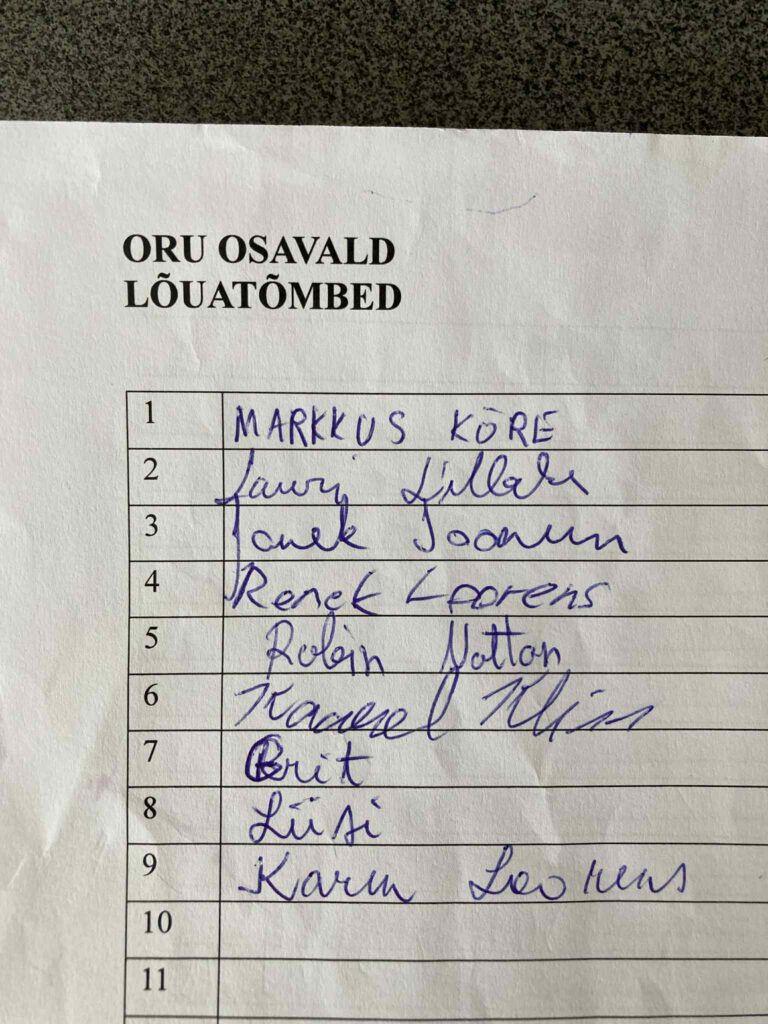 ORU OSAVALD
LÕUATÕMBED
1 MARKKUS KÕRE
2 Lauri Lillak
3 Janek Joonun
4 Renek Loorens
5 Robin Nottan
6 Kaarel Kliss
7 Brit
8 Liisi
9 Karin Loorens
10
11